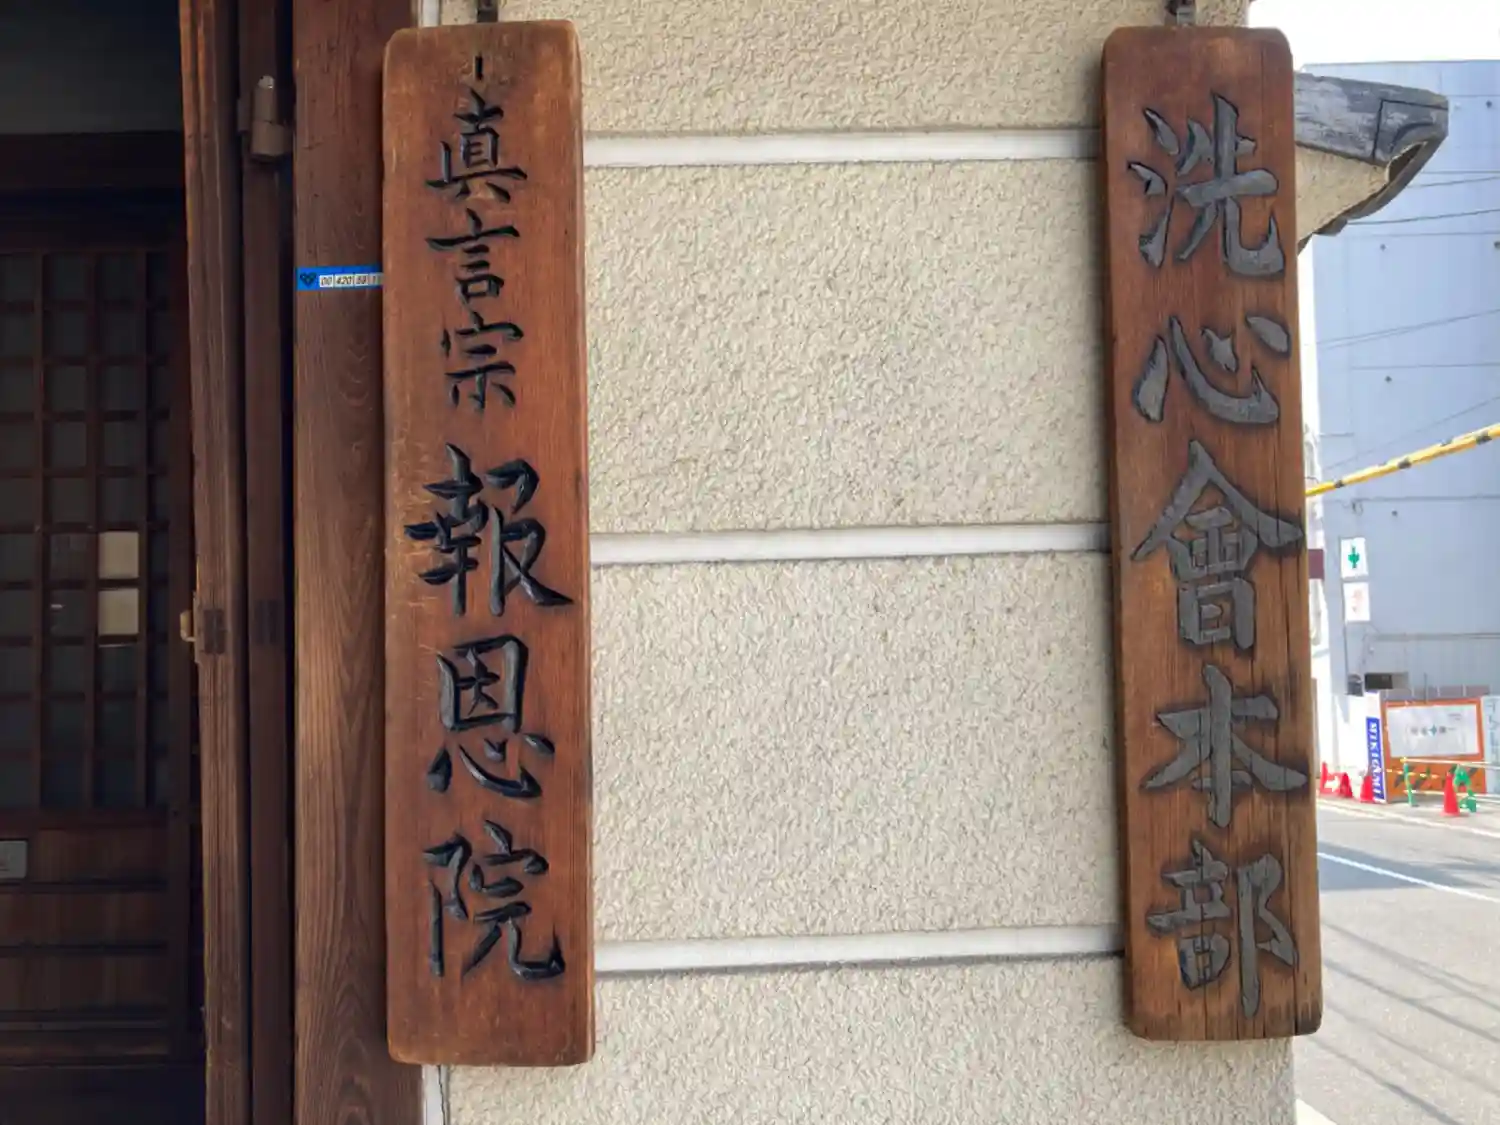 洗心會本部
真言宗 報恩院